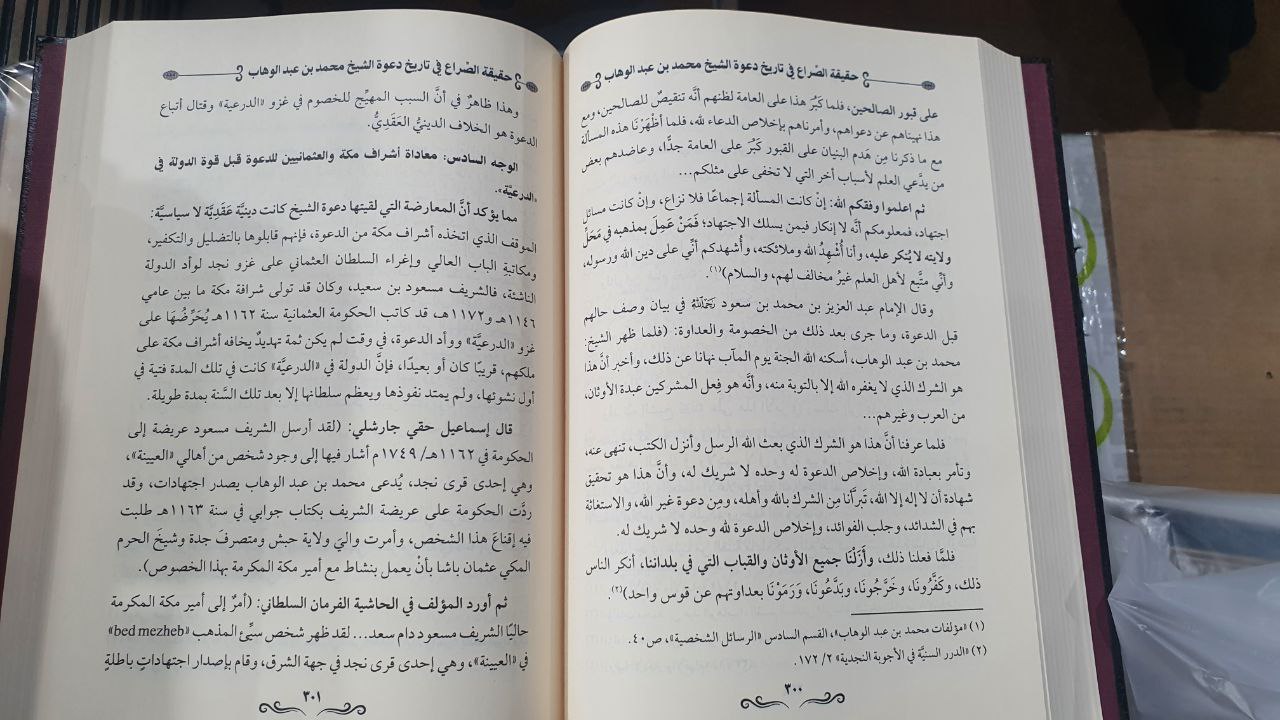 حقيقة الصّراع في تاريخ دعوة الشيخ محمد بن عبد الوهاب
على قبور الصالحين، فلما كَبُرَ هذا على العامة لظنهم أنَّه تنقيصٌ للصالحين، ومع
هذا نهيناهم عن دعواهم، وأمرناهم بإخلاص الدعاء لله، فلما أظهَرْنَا هذه المسألة
مع ما ذكرنا مِن هَدم البنيان على القبور كَبُرَ على العامة جدًّا، وعاضدهم بعض
من يدَّعي العلم لأسباب أخر التي لا تخفى على مثلكم...
ثم اعلموا وفقكم الله: إنْ كانت المسألة إجماعًا فلا نزاع، وإنْ كانت مسائل
اجتهاد، فمعلومكم أنَّه لا إنكار فيمن يسلك الاجتهاد؛ فَمَنْ عَمِلَ بمذهبه في مَحَلِّ
ولايته لا يُنكر عليه، وأنا أُشْهِدُ الله وملائكته، وأُشهدكم أنِّي على دين الله ورسوله،
وأنِّي متَّبع لأهل العلم غيرُ مخالف لهم، والسلام)(١).
وقال الإمام عبد العزيز بن محمد بن سعود رَحِمَهُ اللَّهُ في بيان وصف حالهم
قبل الدعوة، وما جرى بعد ذلك من الخصومة والعداوة: (فلما ظهر الشيخ:
محمد بن عبد الوهاب، أسكنه الله الجنة يوم المآب نهانا عن ذلك، وأخبر أنَّ هذا
هو الشرك الذي لا يغفره الله إلا بالتوبة منه، وأنَّه هو فِعل المشركين عبدة الأوثان،
من العرب وغيرهم...
فلما عرفنا أنَّ هذا هو الشرك الذي بعث الله الرسل وأنزل الكتب، تنهى عنه،
وتأمر بعبادة الله، وإخلاص الدعوة له وحده لا شريك له، وأنَّ هذا هو تحقيق
شهادة أن لا إله إلا الله، تَبرَّأنَا مِنَ الشرك بالله وأهله، ومِن دعوة غير الله، والاستغاثة
بهم في الشدائد، وجلب الفوائد، وإخلاص الدعوة لله وحده لا شريك له.
فلمَّا فعلنا ذلك، وأَزَلْنَا جميع الأوثان والقباب التي في بلداننا، أنكر الناس
ذلك، وكَفَّرُونَا، وخَرَّجُونَا، وبَدَّعُونَا، وَرَمَوْنَا بعداوتهم عن قوس واحد)(٢).
(١) «مؤلفات محمد بن عبد الوهاب»، القسم السادس «الرسائل الشخصية»، ص٤٠.
(٢) «الدرر السنيَّة في الأجوبة النجدية» ٢/ ١٧٢.
٣٠٠
حقيقة الصّراع في تاريخ دعوة الشيخ محمد بن عبد الوهاب
وهذا ظاهرٌ في أنَّ السبب المهيِّج للخصوم في غزو «الدرعية» وقتال أتباع
الدعوة هو الخلاف الدينيُّ العَقَديُّ.
الوجه السادس: معاداة أشراف مكة والعثمانيين للدعوة قبل قوة الدولة في
«الدرعيَّة».
مما يؤكد أنَّ المعارضة التي لقيتها دعوة الشيخ كانت دينيَّة عَقَديَّة لا سياسيَّة:
الموقف الذي اتخذه أشراف مكة من الدعوة، فإنهم قابلوها بالتضليل والتكفير،
ومكاتبةِ الباب العالي وإغراء السلطان العثماني على غزو نجد لوأد الدولة
الناشئة، فالشريف مسعود بن سعيد، وكان قد تولى شرافة مكة ما بين عامي
١١٤٦هـ و١١٧٢هـ، قد كاتب الحكومة العثمانية سنة ١١٦٢هـ يُحَرِّضُهَا على
غزو «الدرعيَّة» ووأد الدعوة، في وقت لم يكن ثمة تهديدٌ يخافه أشراف مكة على
ملكهم، قريبًا كان أو بعيدًا، فإنَّ الدولة في «الدرعيَّة» كانت في تلك المدة فتية في
أول نشوئها، ولم يمتد نفوذها ويعظم سلطانها إلا بعد تلك السَّنة بمدة طويلة.
قال إسماعيل حقي جارشلي: (لقد أرسل الشريف مسعود عريضة إلى
الحكومة في ١١٦٢هـ/ ١٧٤٩م أشار فيها إلى وجود شخص من أهالي «العيينة»،
وهي إحدى قرى نجد، يُدعى محمد بن عبد الوهاب يصدر اجتهادات، وقد
ردَّت الحكومة على عريضة الشريف بكتاب جوابي في سنة ١١٦٣هـ طلبت
فيه إقناعَ هذا الشخص، وأمرت واليَ ولاية حبش ومتصرفَ جدة وشيخَ الحرم
المكي عثمان باشا بأنْ يعمل بنشاط مع أمير مكة المكرمة بهذا الخصوص).
ثم أورد المؤلف في الحاشية الفرمان السلطاني: (أمرٌ إلى أمير مكة المكرمة
حاليًا الشريف مسعود دام سعد... لقد ظهر شخص سيِّئُ المذهب «bed mezheb»
في «العيينة»، وهي إحدى قرى نجد في جهة الشرق، وقام بإصدار اجتهاداتٍ باطلةٍ
٣٠١